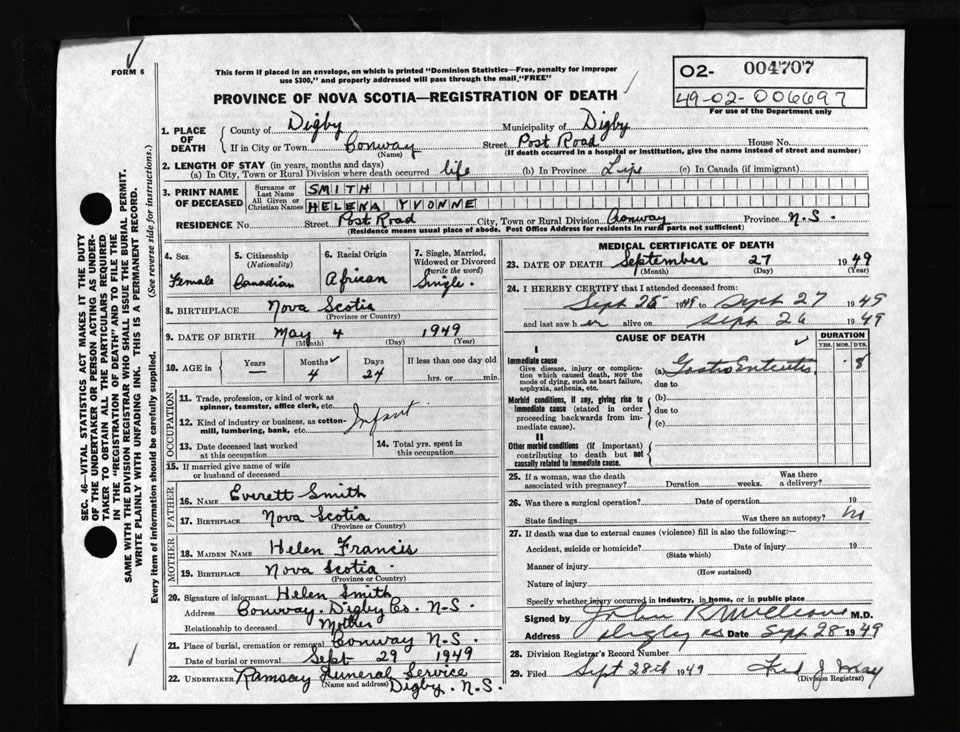 FORM 6
This form if placed in an envelope, on which is printed "Dominion Statistics—Free, penalty for improper
use $300," and properly addressed will pass through the mail, "FREE"
PROVINCE OF NOVA SCOTIA—REGISTRATION OF DEATH
02- 004707
49-02-006697
For use of the Department only
1. PLACE OF DEATH
County of Digby Municipality of Digby
If in City or Town Conway (Name) Street Post Road House No.
(If death occurred in a hospital or institution, give the name instead of street and number)
2. LENGTH OF STAY (in years, months and days)
(a) In City, Town or Rural Division where death occurred life (b) In Province Life (c) In Canada (if immigrant)
3. PRINT NAME OF DECEASED
Surname or Last Name SMITH
All Given or Christian Names HELENA YVONNE
RESIDENCE No. Street Post Road City, Town or Rural Division Conway Province N.S.
(Residence means usual place of abode. Post Office Address for residents in rural parts not sufficient)
4. Sex Female
5. Citizenship (Nationality) Canadian
6. Racial Origin African
7. Single, Married, Widowed or Divorced (write the word) Single.
8. BIRTHPLACE Nova Scotia
(Province or Country)
9. DATE OF BIRTH May 4 1949
(Month) (Day) (Year)
10. AGE in Years — Months 4 Days 24 If less than one day old
hrs. or min.
OCCUPATION
11. Trade, profession, or kind of work as
spinner, teamster, office clerk, etc.
12. Kind of industry or business, as cotton-
mill, lumbering, bank, etc.
Infant
13. Date deceased last worked
at this occupation
14. Total yrs. spent in
this occupation
15. If married give name of wife
or husband of deceased
FATHER
16. NAME Everett Smith
17. BIRTHPLACE Nova Scotia
(Province or Country)
MOTHER
18. MAIDEN NAME Helen Francis
19. BIRTHPLACE Nova Scotia
(Province or Country)
20. Signature of informant Helen Smith
Address Conway. Digby Co. N-S.
Relationship to deceased Mother
21. Place of burial, cremation or removal Conway N-S.
Date of burial or removal Sept 29 1949
22. UNDERTAKER Ramsay Funeral Service
(Name and address) Digby. N.S.
MEDICAL CERTIFICATE OF DEATH
23. DATE OF DEATH September 27 1949
(Month) (Day) (Year)
24. I HEREBY CERTIFY that I attended deceased from:
Sept 1949 to Sept 27 1949
and last saw her alive on Sept 26 1949
CAUSE OF DEATH
DURATION
YRS. MOS. DYS.
I
Immediate cause
Give disease, injury or complica-
tion which caused death, NOT the
mode of dying, such as heart failure,
asphyxia, asthenia, etc.
(a) Gastro Enteritis 8
due to
Morbid conditions, if any, giving rise to
immediate cause (stated in order
proceeding backwards from im-
mediate cause).
(b)
due to
(c)
II
Other morbid conditions (if important)
contributing to death but not
causally related to immediate cause.
25. If a woman, was the death
associated with pregnancy? Duration weeks. Was there
a delivery?
26. Was there a surgical operation? Date of operation 19
State findings Was there an autopsy?
27. If death was due to external causes (violence) fill in also the following:—
Accident, suicide or homicide? Date of injury 19
(State which)
Manner of injury
(How sustained)
Nature of injury
Specify whether injury occurred in industry, in home, or in public place
Signed by John R Williams M.D.
Address Digby NS Date Sept 28 1949
28. Division Registrar's Record Number
29. Filed Sept 28th 1949 Fred J May
(Division Registrar)
SEC. 46—VITAL STATISTICS ACT MAKES IT THE DUTY
OF THE UNDERTAKER OR PERSON ACTING AS UNDER-
TAKER TO OBTAIN ALL THE PARTICULARS REQUIRED
IN THE "REGISTRATION OF DEATH" AND TO FILE THE
SAME WITH THE DIVISION REGISTRAR WHO SHALL ISSUE THE BURIAL PERMIT.
WRITE PLAINLY WITH UNFADING INK. THIS IS A PERMANENT RECORD.
Every item of information should be carefully supplied. (See reverse side for instructions.)